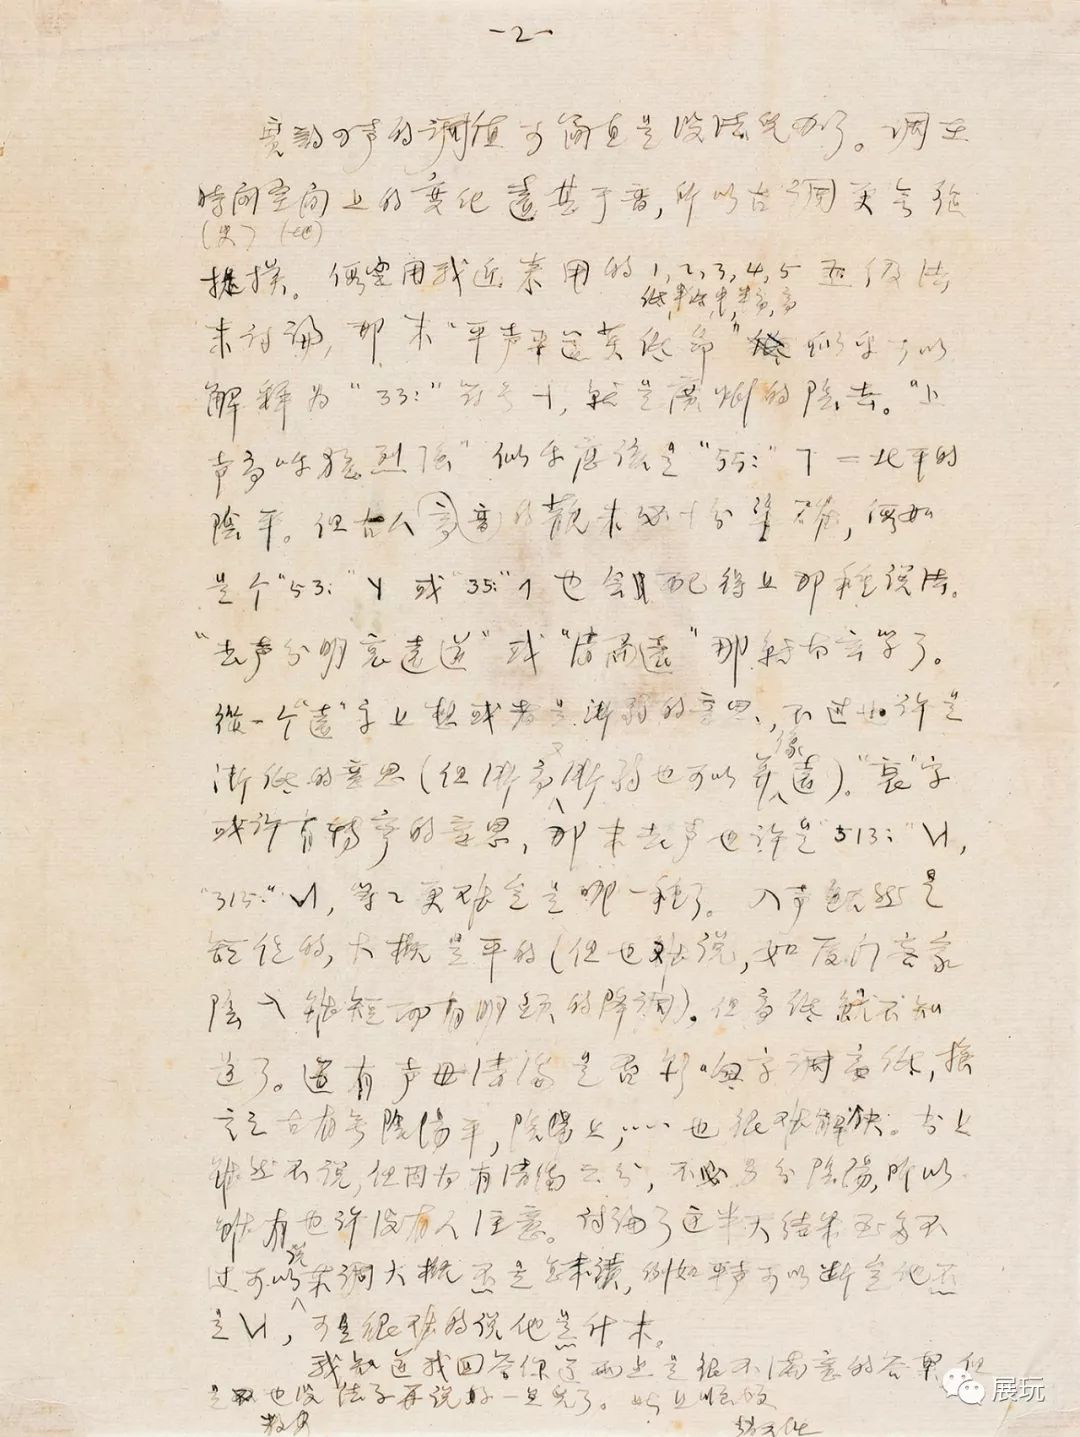 -2-
实的四声的调值可简直是没法儿办了。调在
時间空间上的变化还甚于音,所以古调更無從
(史) (地)
捉摸。假定用我近来用的1,2,3,4,5五级法
低,半低,中,半高,高
来讨论,那末"平声平道莫低昂"似乎可以
解释为"33:"符号˧,就是廣州的陰去。"上
声高呼猛烈强"似乎应该是"55:"˥=北平的
陰平。但古人高音的観未必十分準确,假如
是个"53:"或"35:"也会配得上那种说法。
"去声分明哀远道"或"清而远"那转古玄学了。
從一个"远"字上想或者是渐弱的意思,不过也许是
渐低的意思(但渐高又渐弱也可以算像远)。"哀"字
或许有转弯的意思,那末去声也许是"513:",
"315:",等々更难定是哪一种了。入声既然是
短促的,大概是平的(但也难说,如厦门客家
陰入雖短而有明显的降调)。但高低就不知
道了。還有声母清濁是否影响字调高低,换
言之古有無陰陽平,陰陽上,……也很难解决。古上
雖然不说,但因为有清濁之分,不必另分陰陽,所以
雖有也许没有人注意。讨论了这半天结果至多不
过可以说某调大概不是怎末读,例如平声可以断定他不
是,可是很难的说他是什末。
我知道我回答你这两上是很不满意的答案,但
是也没法子再说好一点兒了。此上顺颂
教安
赵元任
展玩